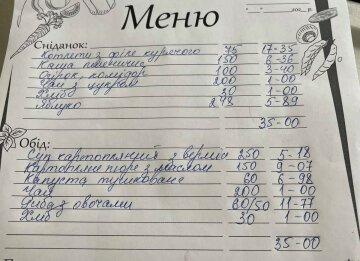 Меню
202 р.
Сніданок:
Котлети з філе курячого 75 17-35
Каша пшенична 150 6-36
Огірок, помідор 100 3-40
Чай з цукром 200 1-00
Хліб 30 1-00
Яблуко 248 5-89
35-00
Обід:
Суп картопляний з верміс 250 5-18
Картопляне пюре з маслом 150 9-07
Капуста тушкована 60 6-98
Чай 200 1-00
Риба з овочами 60/50 11-77
Хліб 30 1-00
35-00